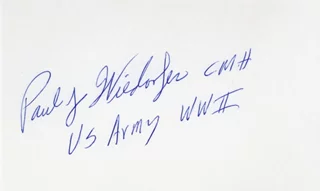 Paul J Wiedorfer CMH
US Army WWII